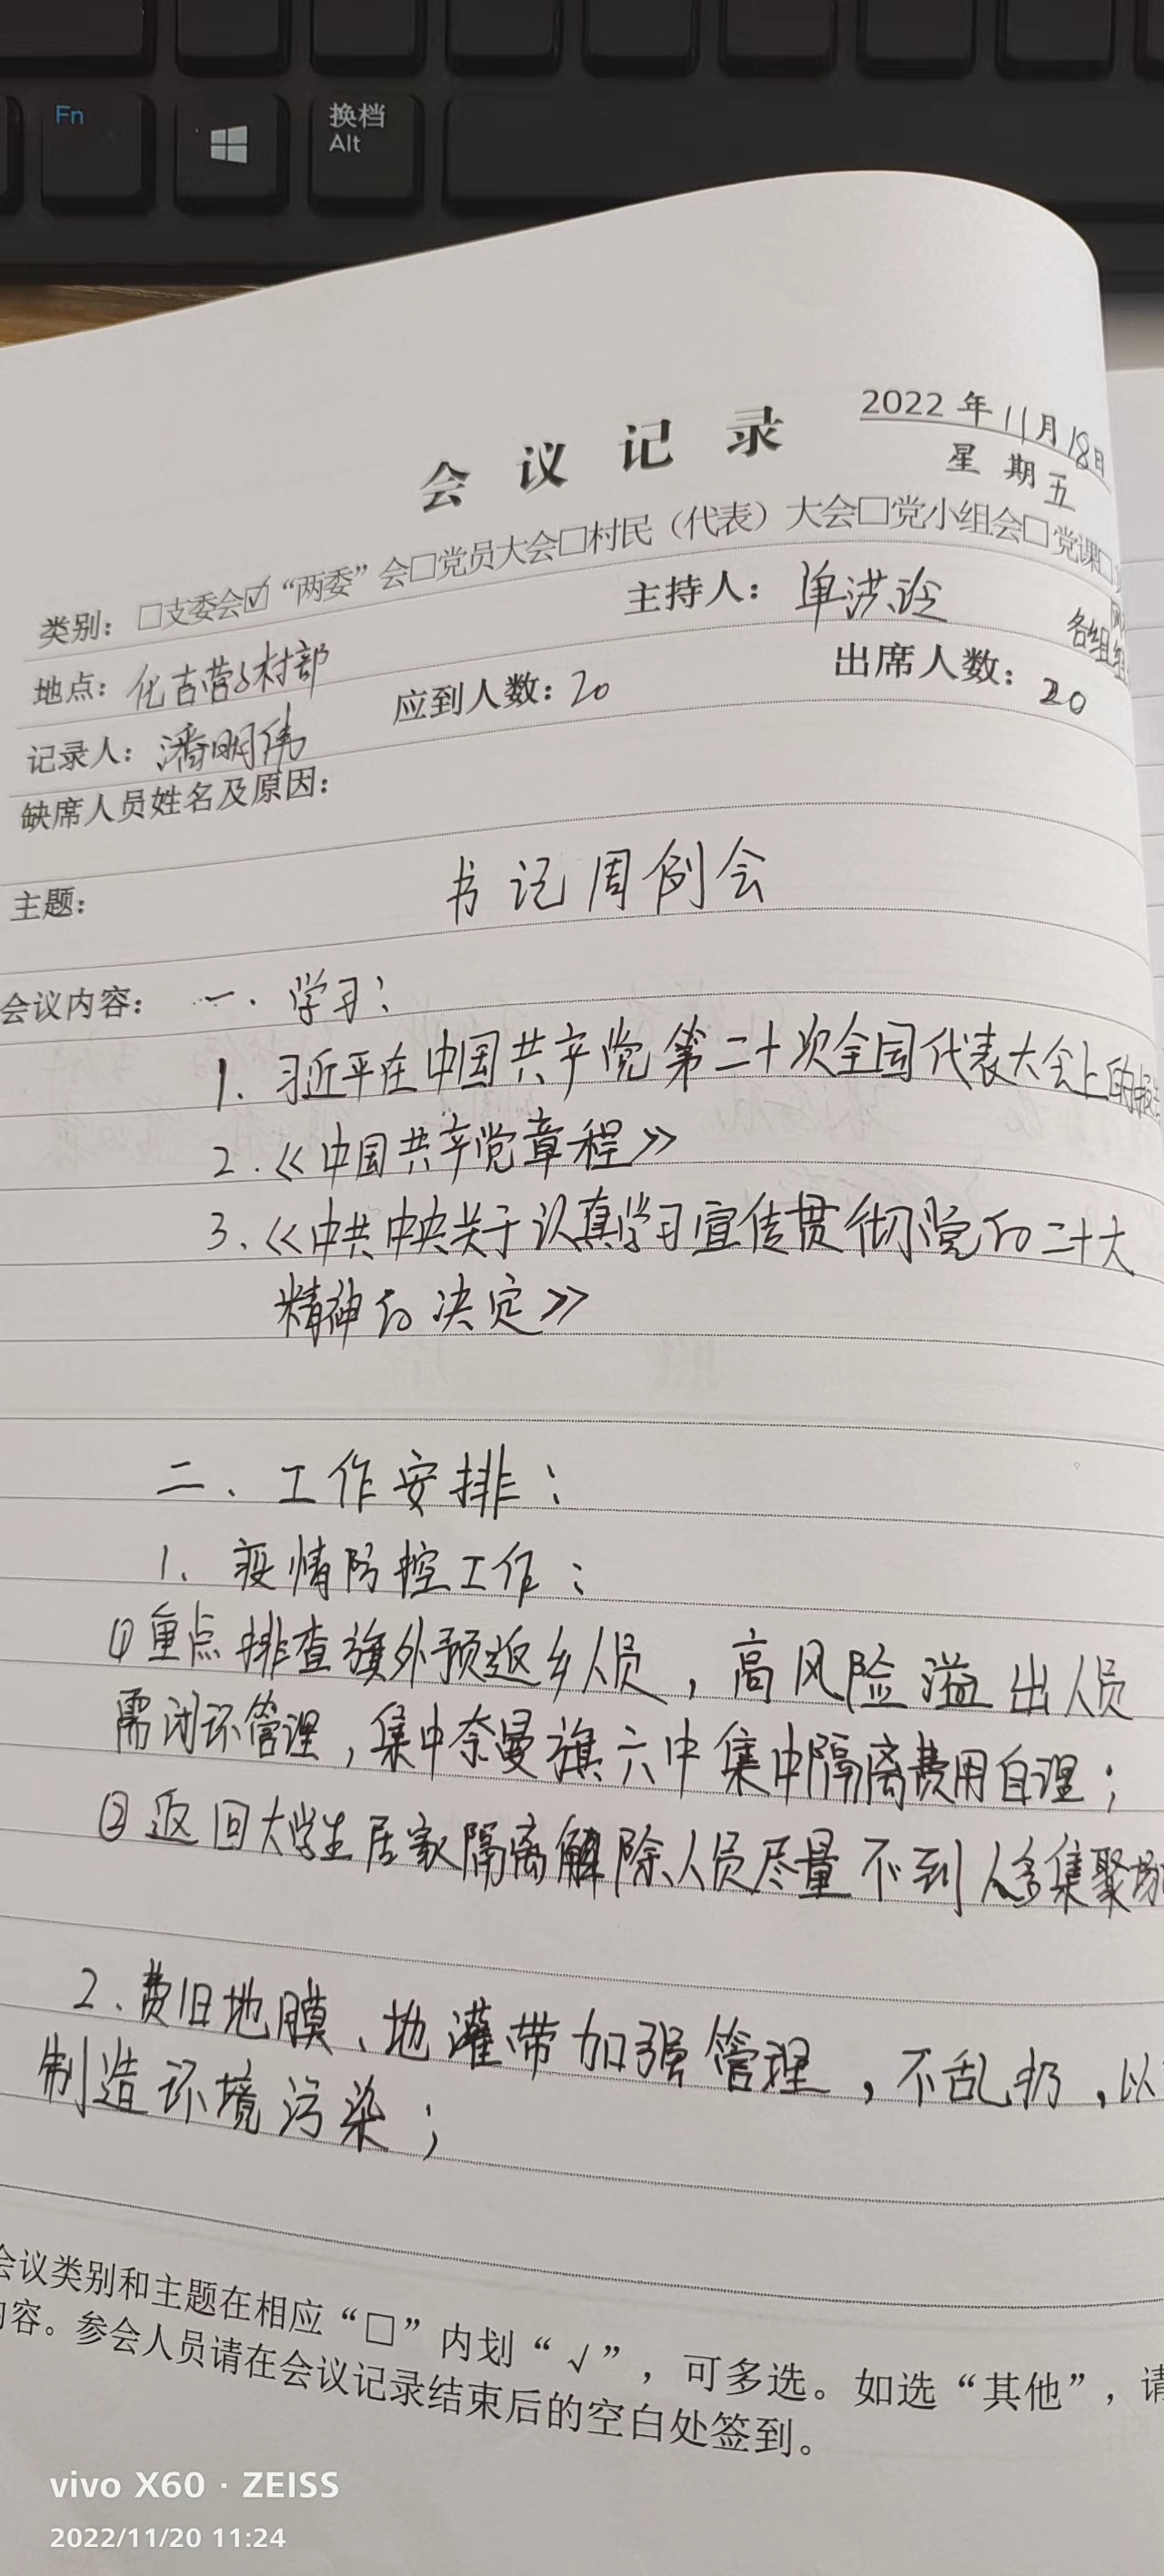 Fn
换档
Alt
会议记录
2022年11月18日
星期五
类别：□支委会☑“两委”会□党员大会□村民（代表）大会□党小组会□党课□
地点：化吉营子村部 主持人：单洪
各组组
记录人：潘明伟 应到人数：20 出席人数：20
缺席人员姓名及原因：
主题： 书记周例会
会议内容： 一．学习：
1．习近平在中国共产党第二十次全国代表大会上的报告
2．《中国共产党章程》
3、《中共中央关于认真学习宣传贯彻党的二十大
精神的决定》
二、工作安排：
1、疫情防控工作：
①重点排查旗外预返乡人员，高风险溢出人员
需闭环管理，集中奈曼旗六中集中隔离费用自理；
②返回大学生居家隔离解除人员尽量不到人多集聚场
2、费旧地膜、地灌带加强管理，不乱扔，以
制造环境污染；
会议类别和主题在相应“□”内划“√”，可多选。如选“其他”，请
内容。参会人员请在会议记录结束后的空白处签到。
vivo X60 · ZEISS
2022/11/20 11:24